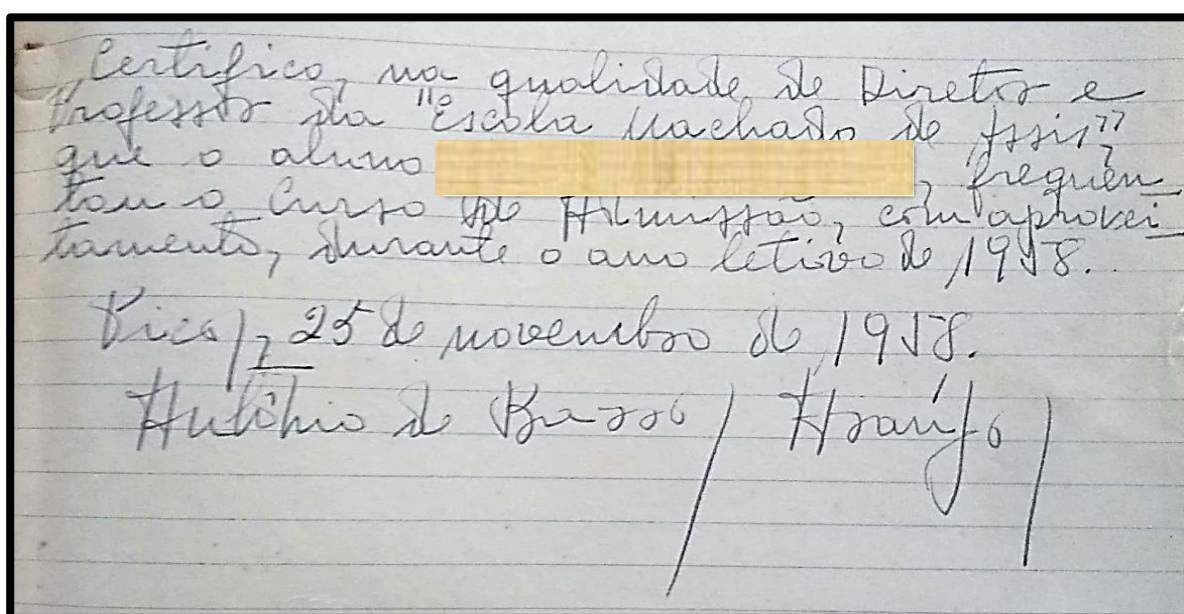 Certifico, na qualidade de Diretor e
Professor da "Escola Machado de Assis"
que o aluno , frequên
tou o Curso de Admissão, com aprovei_
tamento, durante o ano letivo de 1958.
25 de novembro de 1958.
Antônio de Barros Araújo